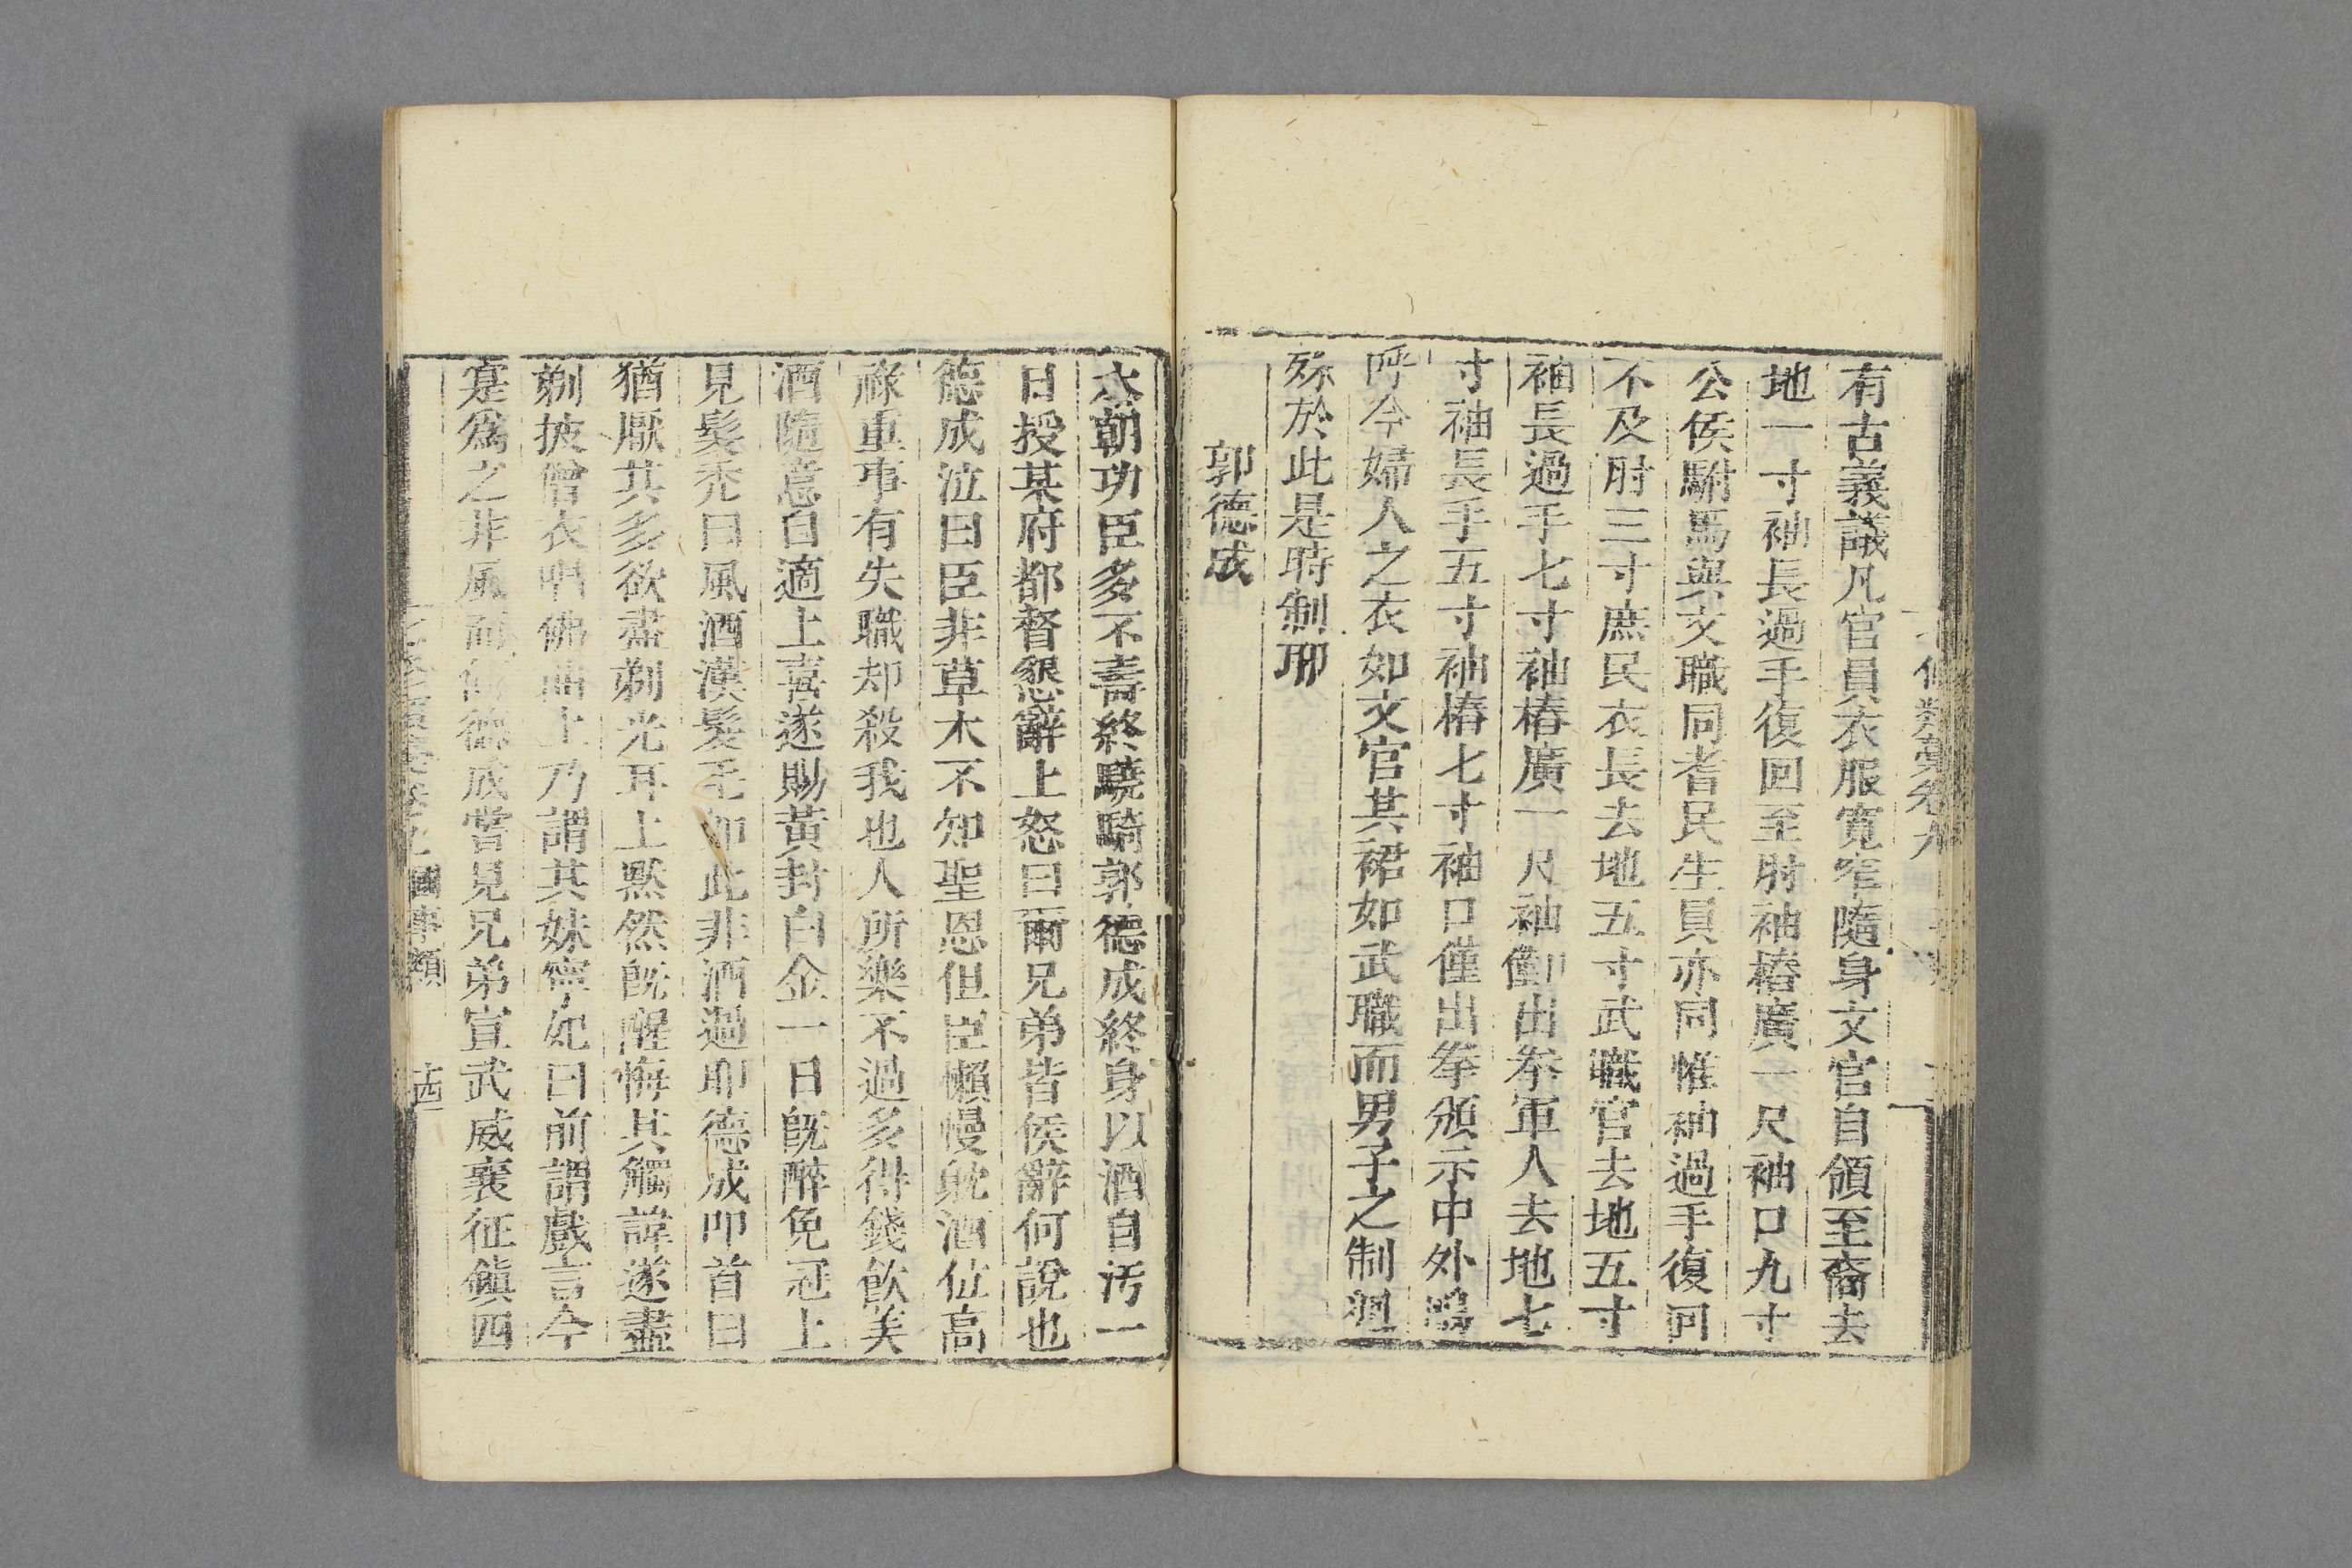 有古義議凡官員衣服寬窄隨身文官自領至裔去
地一寸袖長過手復回至肘袖樁廣一尺袖口九寸
公侯駙馬與文職同耆民生員亦同惟袖過手復回
不及肘三寸庶民衣長去地五寸武職官去地五寸
袖長過手七寸袖樁廣一尺袖僅出拳軍人去地七
寸袖長手五寸袖樁七寸袖口僅出拳頒示中外嗚
呼今婦人之衣如文官其裙如武職而男子之制迥
殊於此是時制耶
郭德成
本朝功臣多不壽終驍騎郭德成終身以酒自汚一
日授某府都督懇辭上怒曰爾兄弟皆侯辭何說也
德成泣曰臣非草木不知聖恩但臣懶慢躭酒位高
祿重事有失職却殺我也人所樂不過多得錢飲美
酒隨意自適上喜遂賜黃封白金一日旣醉免冠上
見髮禿曰風酒漢髮毛如此非酒過耶德成叩首曰
猶厭其多欲盡剃光耳上默然旣醒悔其觸諱遂盡
剃披僧衣唱佛曲上乃謂其妹寧妃曰前謂戲言今
寔爲之非風而何德成嘗見兄弟宣武威襄征鎭四
國事類
十四